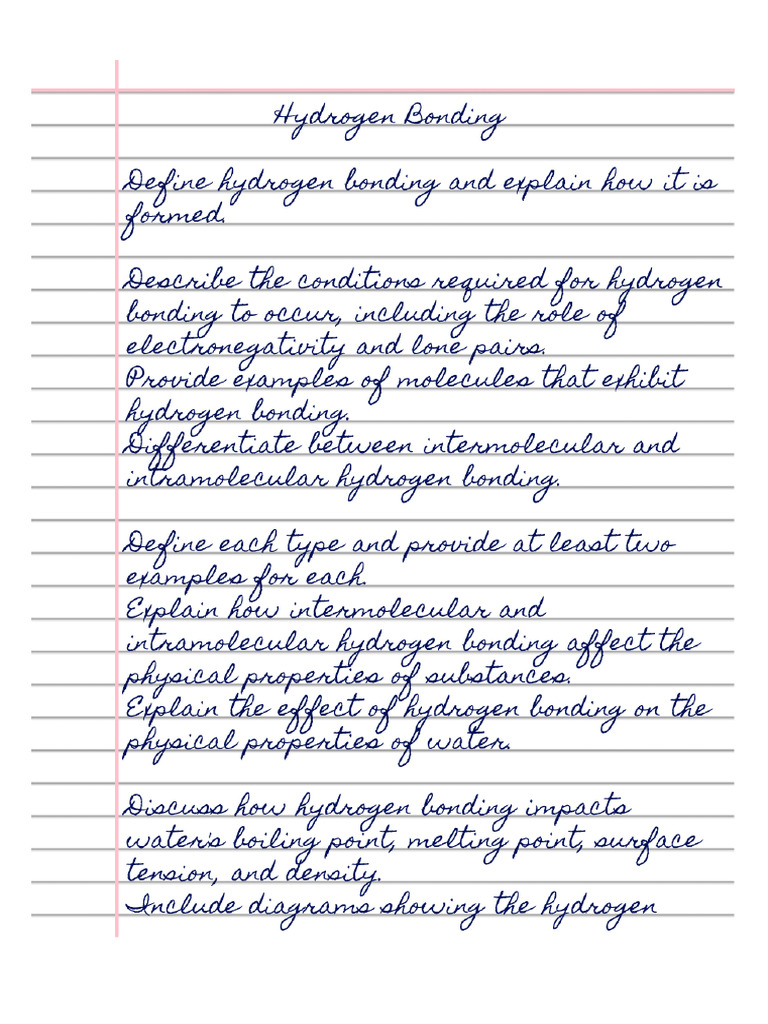 Hydrogen Bonding
Define hydrogen bonding and explain how it is
formed.
Describe the conditions required for hydrogen
bonding to occur, including the role of
electronegativity and lone pairs.
Provide examples of molecules that exhibit
hydrogen bonding.
Differentiate between intermolecular and
intramolecular hydrogen bonding.
Define each type and provide at least two
examples for each.
Explain how intermolecular and
intramolecular hydrogen bonding affect the
physical properties of substances.
Explain the effect of hydrogen bonding on the
physical properties of water.
Discuss how hydrogen bonding impacts
water's boiling point, melting point, surface
tension, and density.
Include diagrams showing the hydrogen